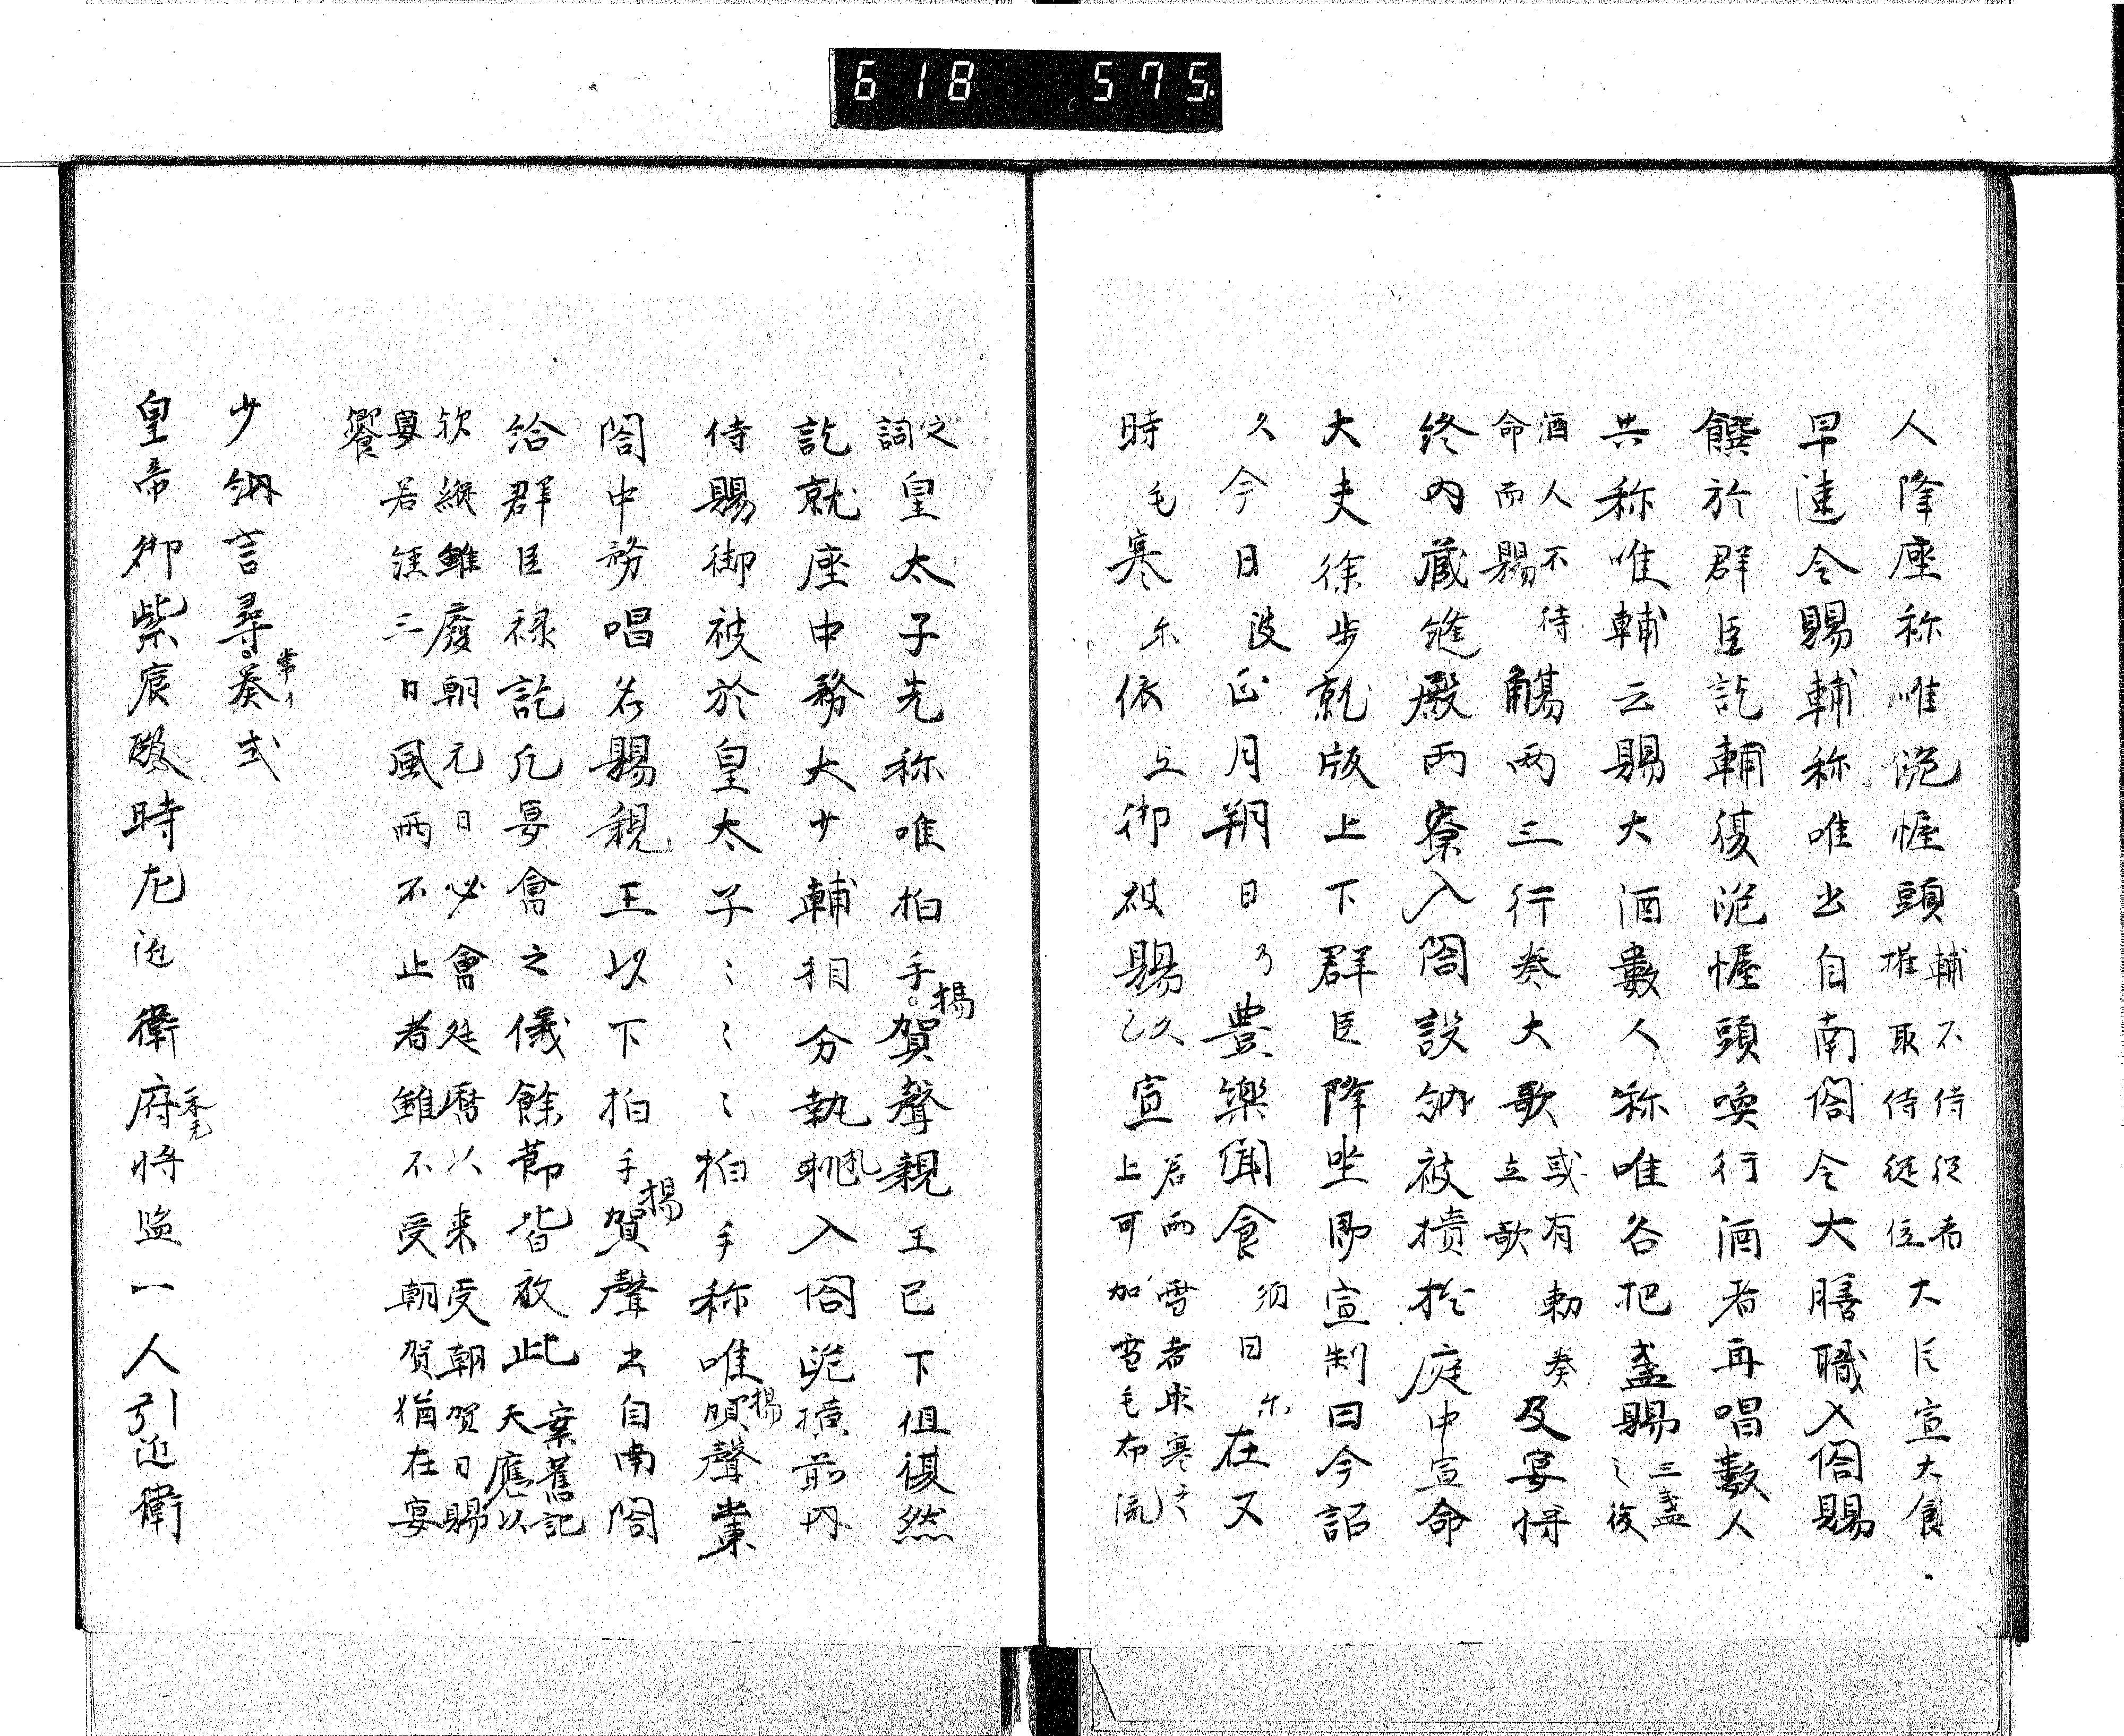 618 575
人降座称唯跪幄頭輔不侍従者推取侍従位大臣宣大食
早速令賜輔称唯出自南閤令大膳職入閤賜
饌於群臣訖輔復跪幄頭喚行酒者再唱數人
共称唯輔云賜大酒數人称唯各把盞賜三盞之後
酒人不待命而賜觴两三行奏大歌或有勅奏立歌及宴将
終内蔵縫殿两寮入閤設納被樻於庭中宣命
大夫徐步就版上下群臣降坐即宣制曰今詔
久今日波正月朔日乃豊樂聞食須日尓在又
時毛寒尓依弖御被賜久宣若雨雪者寒上可加雪毛布流
之詞皇太子先称唯拍手揚賀聲親王已下俱復然
訖就座中務大少輔相分執札入閤跪樻前内
侍賜御被於皇太子〻〻〻拍手称唯揚唄聲業
閤中務唱名賜親王以下拍手揚賀聲出自南閤
給群臣禄訖凡宴會之儀餘莭皆放此案舊記天應以
欤縦雖廢朝元日必會延暦以来受朝賀日賜
宴若經三日風雨不止者雖不受朝賀猶在宴
饗
少納言尋常奏式
皇帝御紫宸殿時左近衛府将監一人引近衛